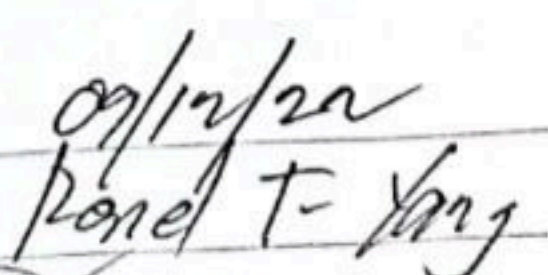 09/12/22
Ronel T- Yang